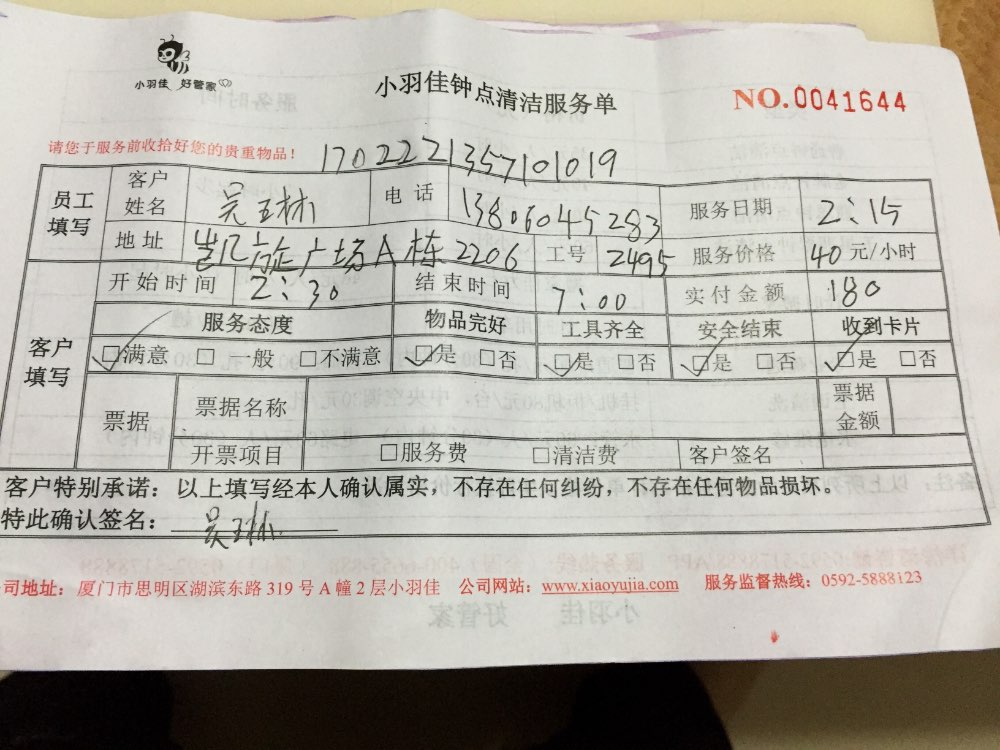 小羽佳 好管家
小羽佳钟点清洁服务单
NO.0041644
请您于服务前收拾好您的贵重物品！
1702221357101019
员工填写 客户姓名 吴玉林 电话 13806045283 服务日期 2:15
地址 凯旋广场A栋2206 工号 2495 服务价格 40元/小时
开始时间 2:30 结束时间 7:00 实付金额 180
客户填写 服务态度 物品完好 工具齐全 安全结束 收到卡片
☑满意 □一般 □不满意 ☑是 □否 ☑是 □否 ☑是 □否 ☑是 □否
票据 票据名称 票据金额
开票项目 □服务费 □清洁费 客户签名
客户特别承诺：以上填写经本人确认属实，不存在任何纠纷，不存在任何物品损坏。
特此确认签名：吴玉林
司地址：厦门市思明区湖滨东路319号A幢2层小羽佳 公司网站：www.xiaoyujia.com 服务监督热线：0592-5888123